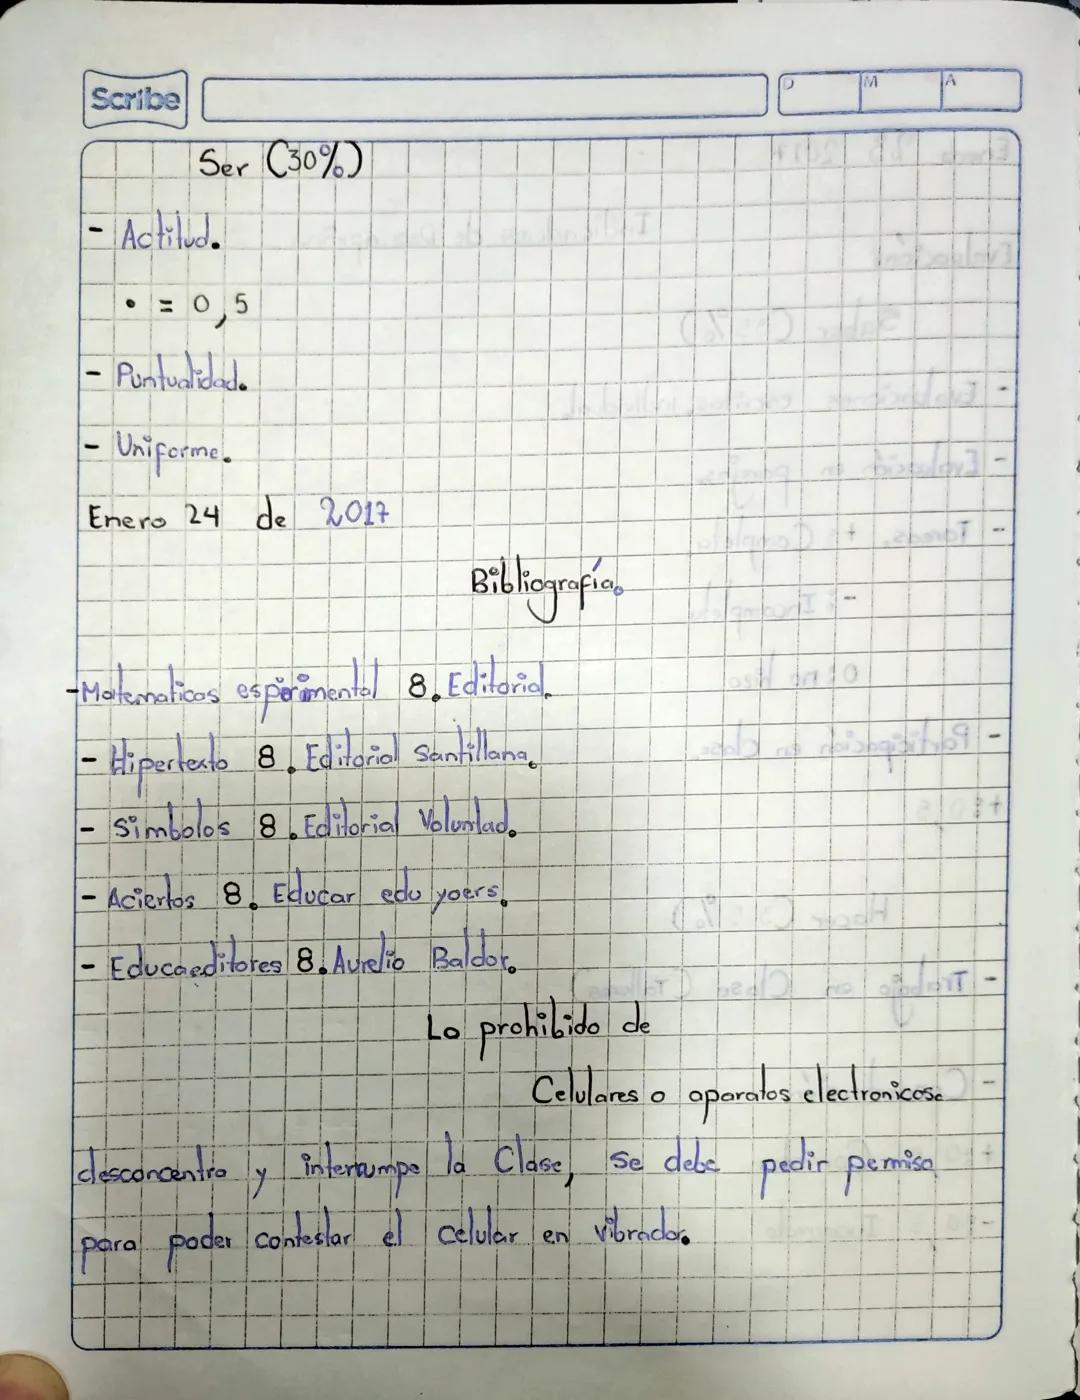 Scribe
D M A
Ser (30%)
- Actitud.
• = 0,5
- Puntualidad.
- Uniforme.
Enero 24 de 2017
Bibliografía.
- Matematicas esperimental 8. Editorial.
- Hipertexto 8. Editorial Santillana.
- Simbolos 8. Editorial Voluntad.
- Aciertos 8. Educar edu yoers.
- Educaeditores 8. Aurelio Baldor.
Lo prohibido de
Celulares o aparatos electronicos.
desconcentra y interrumpe la Clase, se debe pedir permiso
para poder contestar el celular en vibrador.